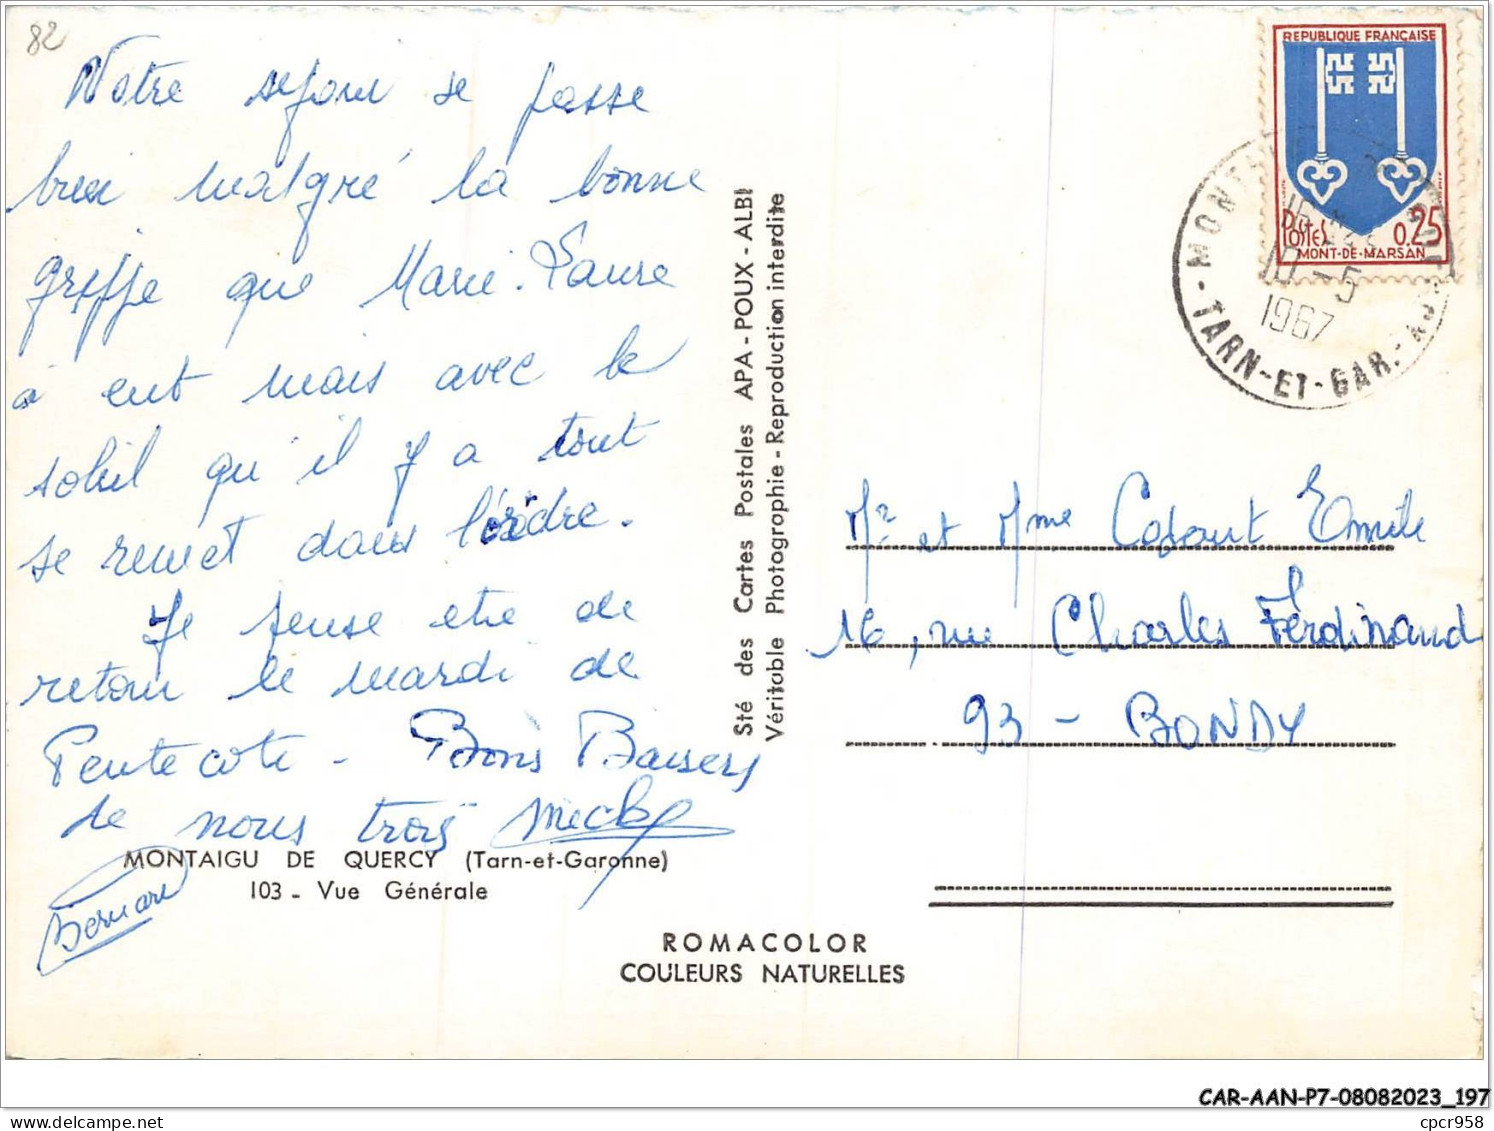 82
Notre séjour se passe
bien malgré la bonne
griffe que Marie-Laure
a eut mais avec le
soleil qu'il y a tout
se remet dans l'ordre.
Je pense etre de
retour le mardi de
Pentecote - Bons Baisers
de nous trois
Bernard
MONTAIGU DE QUERCY (Tarn-et-Garonne)
103 - Vue Générale
ROMACOLOR
COULEURS NATURELLES
Sté des Cartes Postales APA-POUX - ALBI
Véritable Photographie - Reproduction interdite
REPUBLIQUE FRANÇAISE
Postes 0.25
MONT-DE-MARSAN
10 - 5
1967
TARN-ET-GAR.
Mr et Mme Emile
16, rue Charles Ferdinand
93 - BONDY
CAR-AAN-P7-08082023_197
https://www.delcampe.net
cpcr958